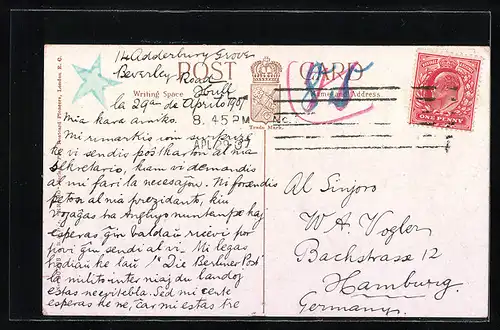 14 Adderbury Grove
Beverley Road
Hull
POST CARD
Writing Space
Name and Address.
la 29an de Aprilo 1907
8.45 PM
APL 29 07
Trade Mark.
ONE PENNY
85
Mia kara amiko.
Mi rimarkis kun surprizo
ke vi sendis poŝtkarton al nia
sekretario, kiam vi demandis
al mi fari la necesajon. Ni forsendis
peton al nia prezidanto, kiu
vojaĝas tra Anglujo nuntempe kaj
esperas ĝin baldaŭ ricevi por
povi ĝin sendi al vi. Mi legas
hodiaŭ ke laŭ "Die Berliner Post"
la milito inter niaj du landoj
estas neevitebla. Sed mi certe
esperas ke ne, ĉar mi estas tre
Al Sinjoro
W. A. Vogler
Bachstrasse 12
Hamburg.
Germany.
London, E.C.